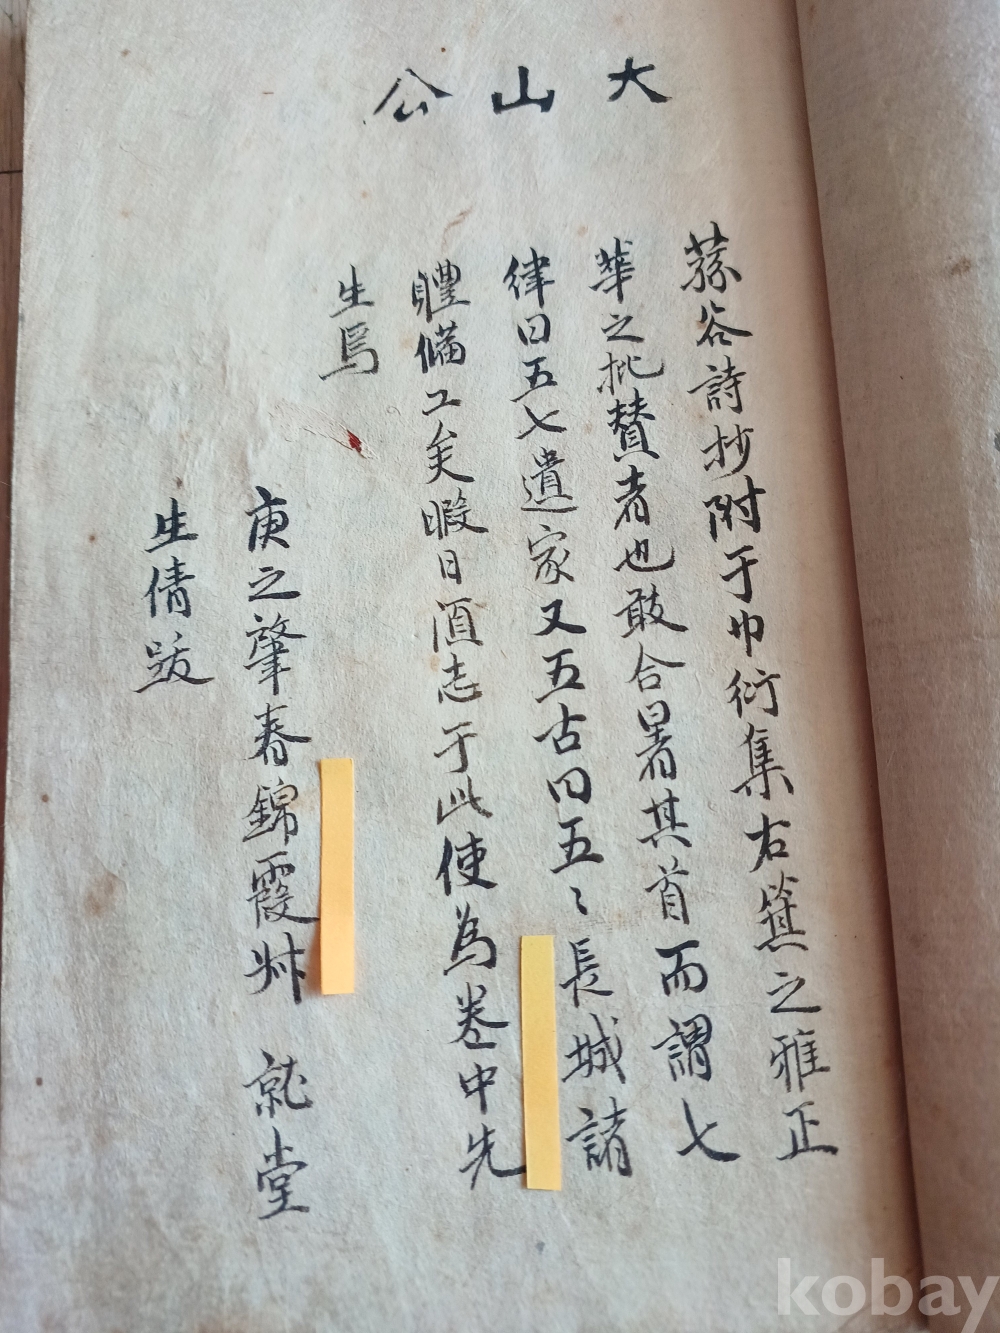 大山公
蓀谷詩抄附于巾衍集右箕之雅正
華之批賛者也敢合署其首而謂七
律曰五七遺家又五古曰五〻長城諸
軆備工矣暇日頂志于此使為卷中先
生焉
庚之肇春錦霞艸 就堂
生倩跋
kobay